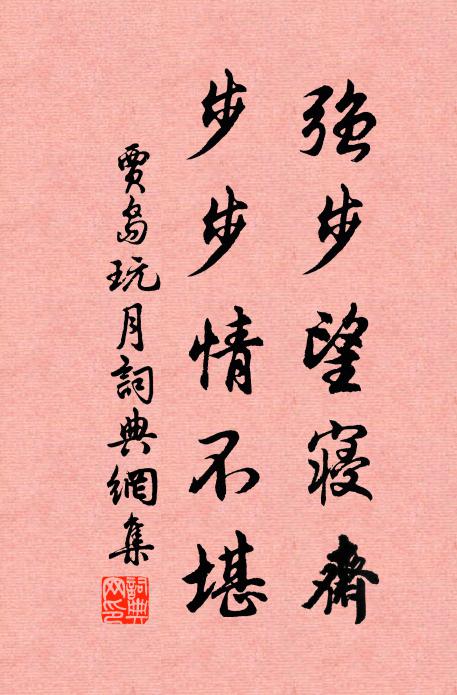 強步望寢齋
步步情不堪
賈島玩月詞典網集
詞典網印